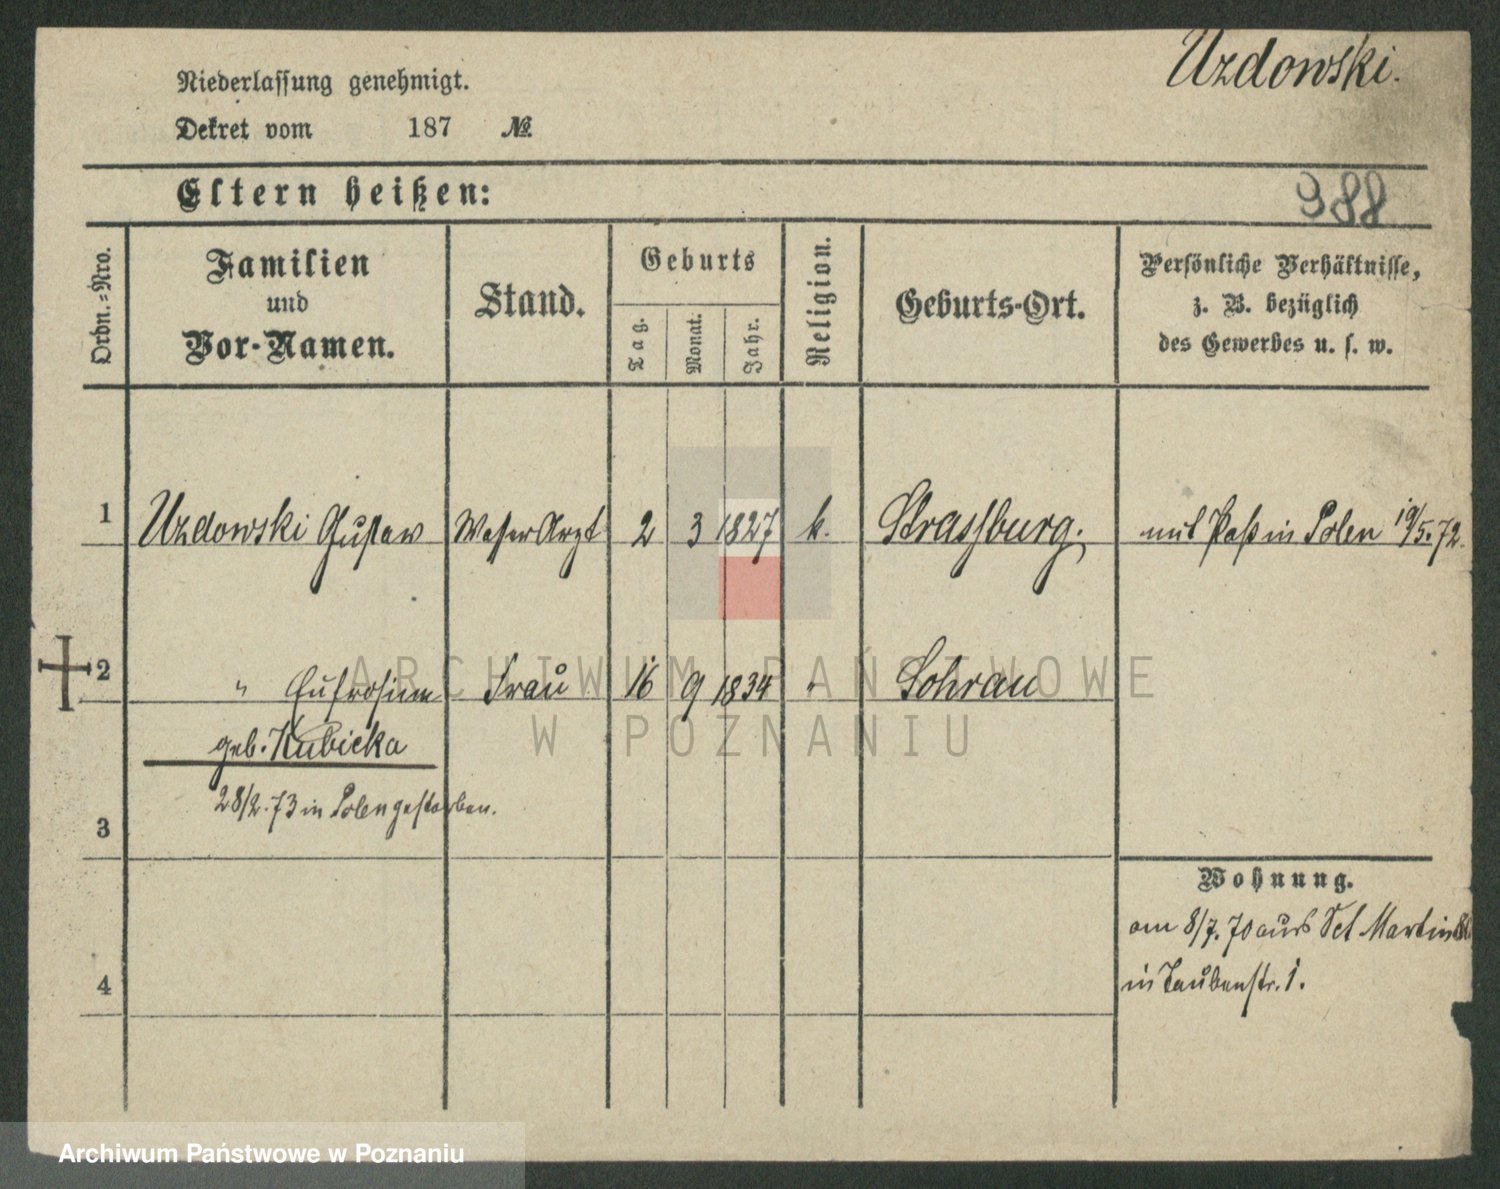 Uzdowski.
Niederlassung genehmigt.
Dekret vom 187 №
Eltern heißen:
988
Ordn.=Nro.
Familien und Vor-Namen.
Stand.
Geburts
Tag.
Monat.
Jahr.
Religion.
Geburts-Ort.
Persönliche Verhältnisse,
z. B. bezüglich
des Gewerbes u. s. w.
1 Uzdowski Gustav Wasser Arzt 2 3 1827 k. Strassburg. mit Paß in Polen 19/5.72.
2 " Eufrosine Frau 16 9 1834 " Sohrau
geb. Kubicka
28/2.73 in Polen gestorben.
3
4
Wohnung.
am 8/7.70 aus Sct Martin
in Taubenstr. 1.
ARCHIWUM PAŃSTWOWE
W POZNANIU
Archiwum Państwowe w Poznaniu